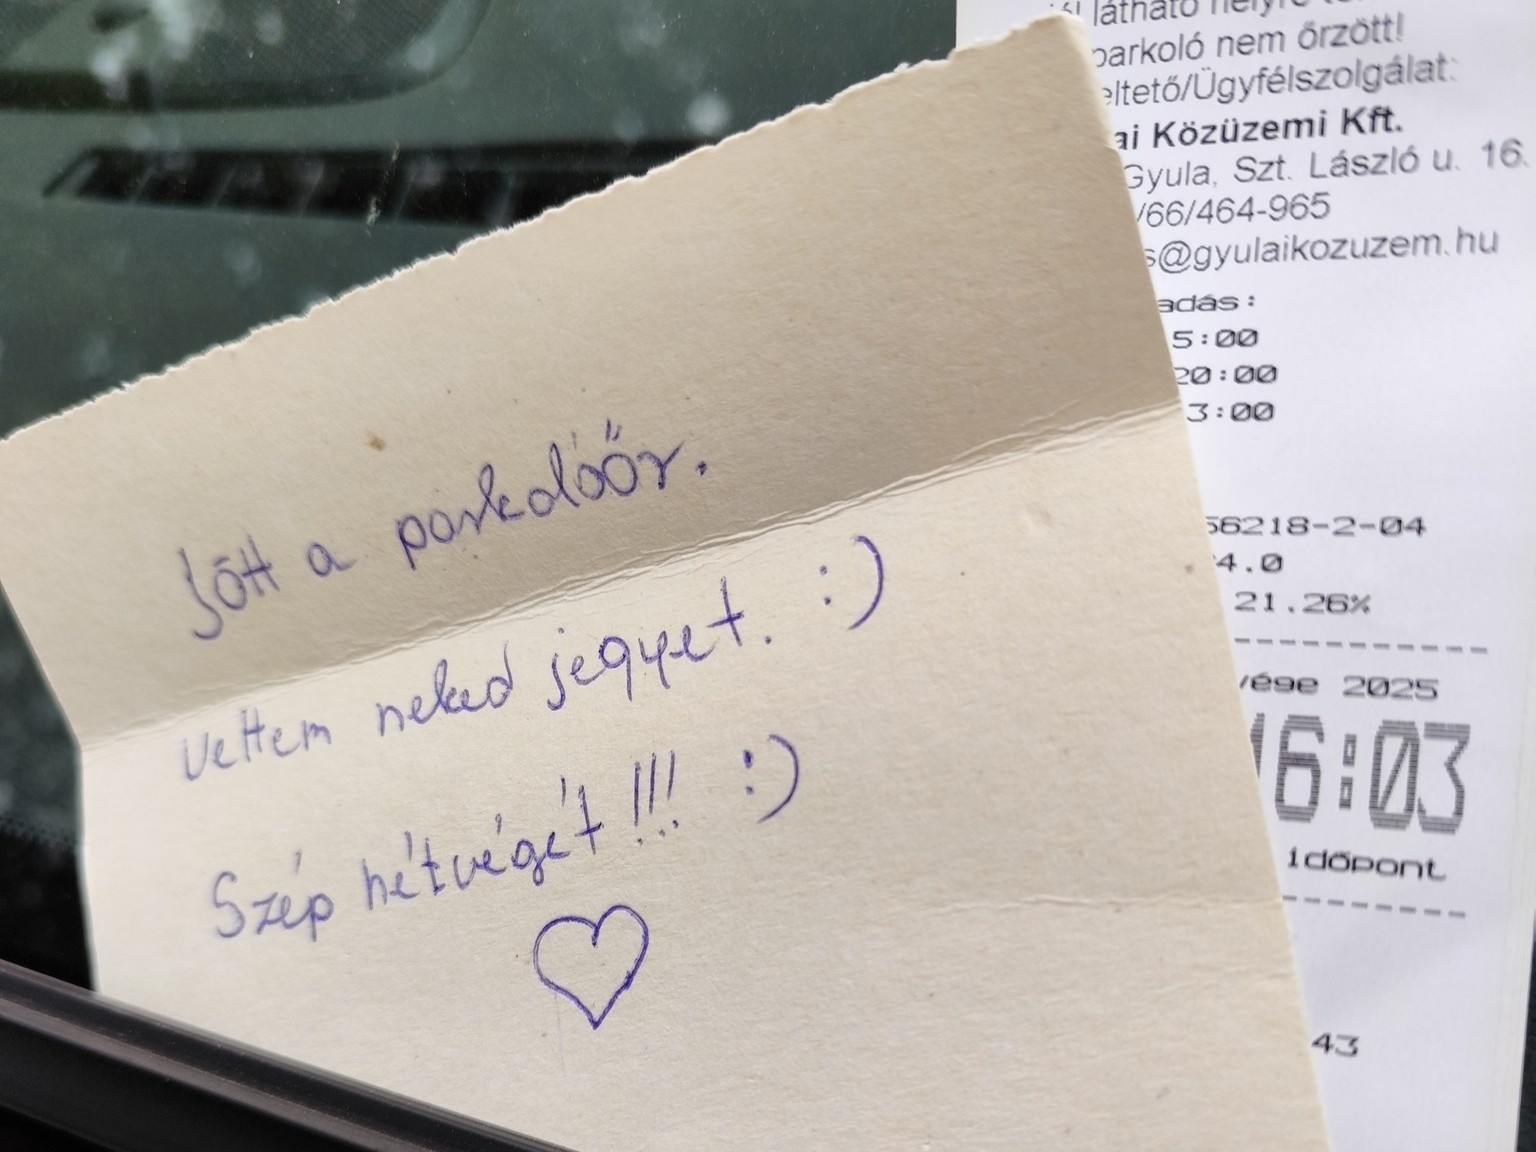 Jött a parkolóőr.
Vettem neked jegyet. :)
Szép hétvégét!!! :)
látható helyre
parkoló nem őrzött!
eltető/Ügyfélszolgálat:
ai Közüzemi Kft.
Gyula, Szt. László u. 16.
/66/464-965
s@gyulaikozuzem.hu
adás:
5:00
20:00
3:00
56218-2-04
4.0
21.26%
vége 2025
16:03
időpont
43